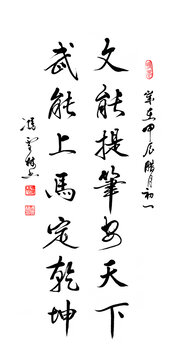 文能提筆安天下
武能上馬定乾坤
甲辰臘月初一